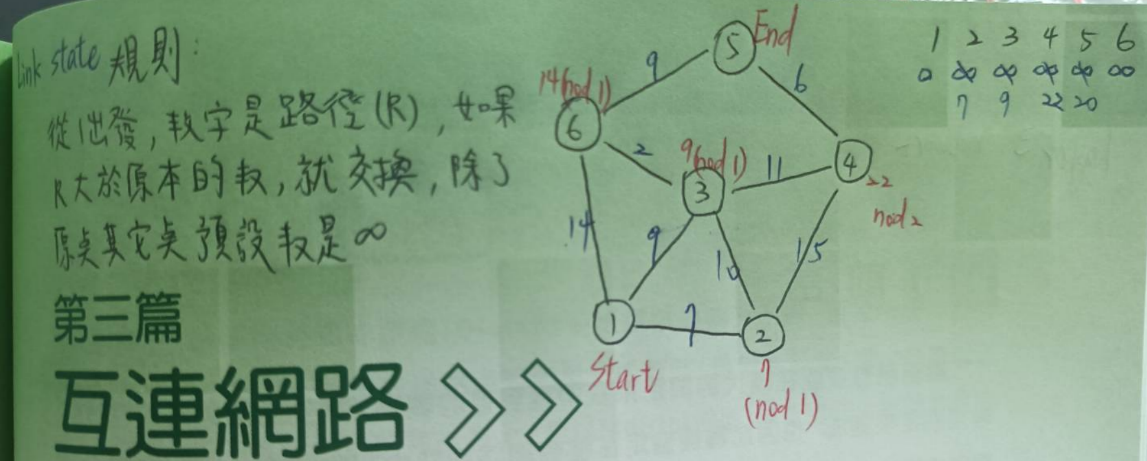 Link state 規則:
從1出發,敉字是路徑(R),如果
R大於原本的敉,就交換,除了
原奌其它奌預設敉是∞
第三篇
互連網路
End
5
9
6
14(nod 1)
6
2
9(nod 1)
3
11
4
22
nod2
14
9
10
15
1
7
2
Start
7
(nod 1)
1 2 3 4 5 6
0 ∞ ∞ ∞ ∞ ∞
7 9 22 20